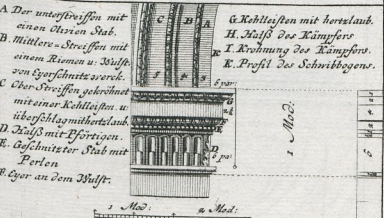 A Der unterstreiffen mit
einen Oliven Stab.
B. Mittlere-Streiffen mit
einem Riemen u: Wulst.
von Eyerschnitzwerck.
C Ober-Streiffen gekröhnet
mit einer Kehlleisten u:
überschlag mit hertzlaub.
D. Halß mit Pförtigen.
E. Geschnitzter Stab mit
Perlen
F. Eyer an dem Wulst.
C
B
A
K
5
4
3
6 par:
G
F
E
D
6 pa
G Kehlleisten mit hertzlaub.
H. Halß des Kämpfers
I. Kröhnung des Kämpfers.
K. Profil des Schwibbogens.
1 Mod:
1 Mod:
2 Mod: